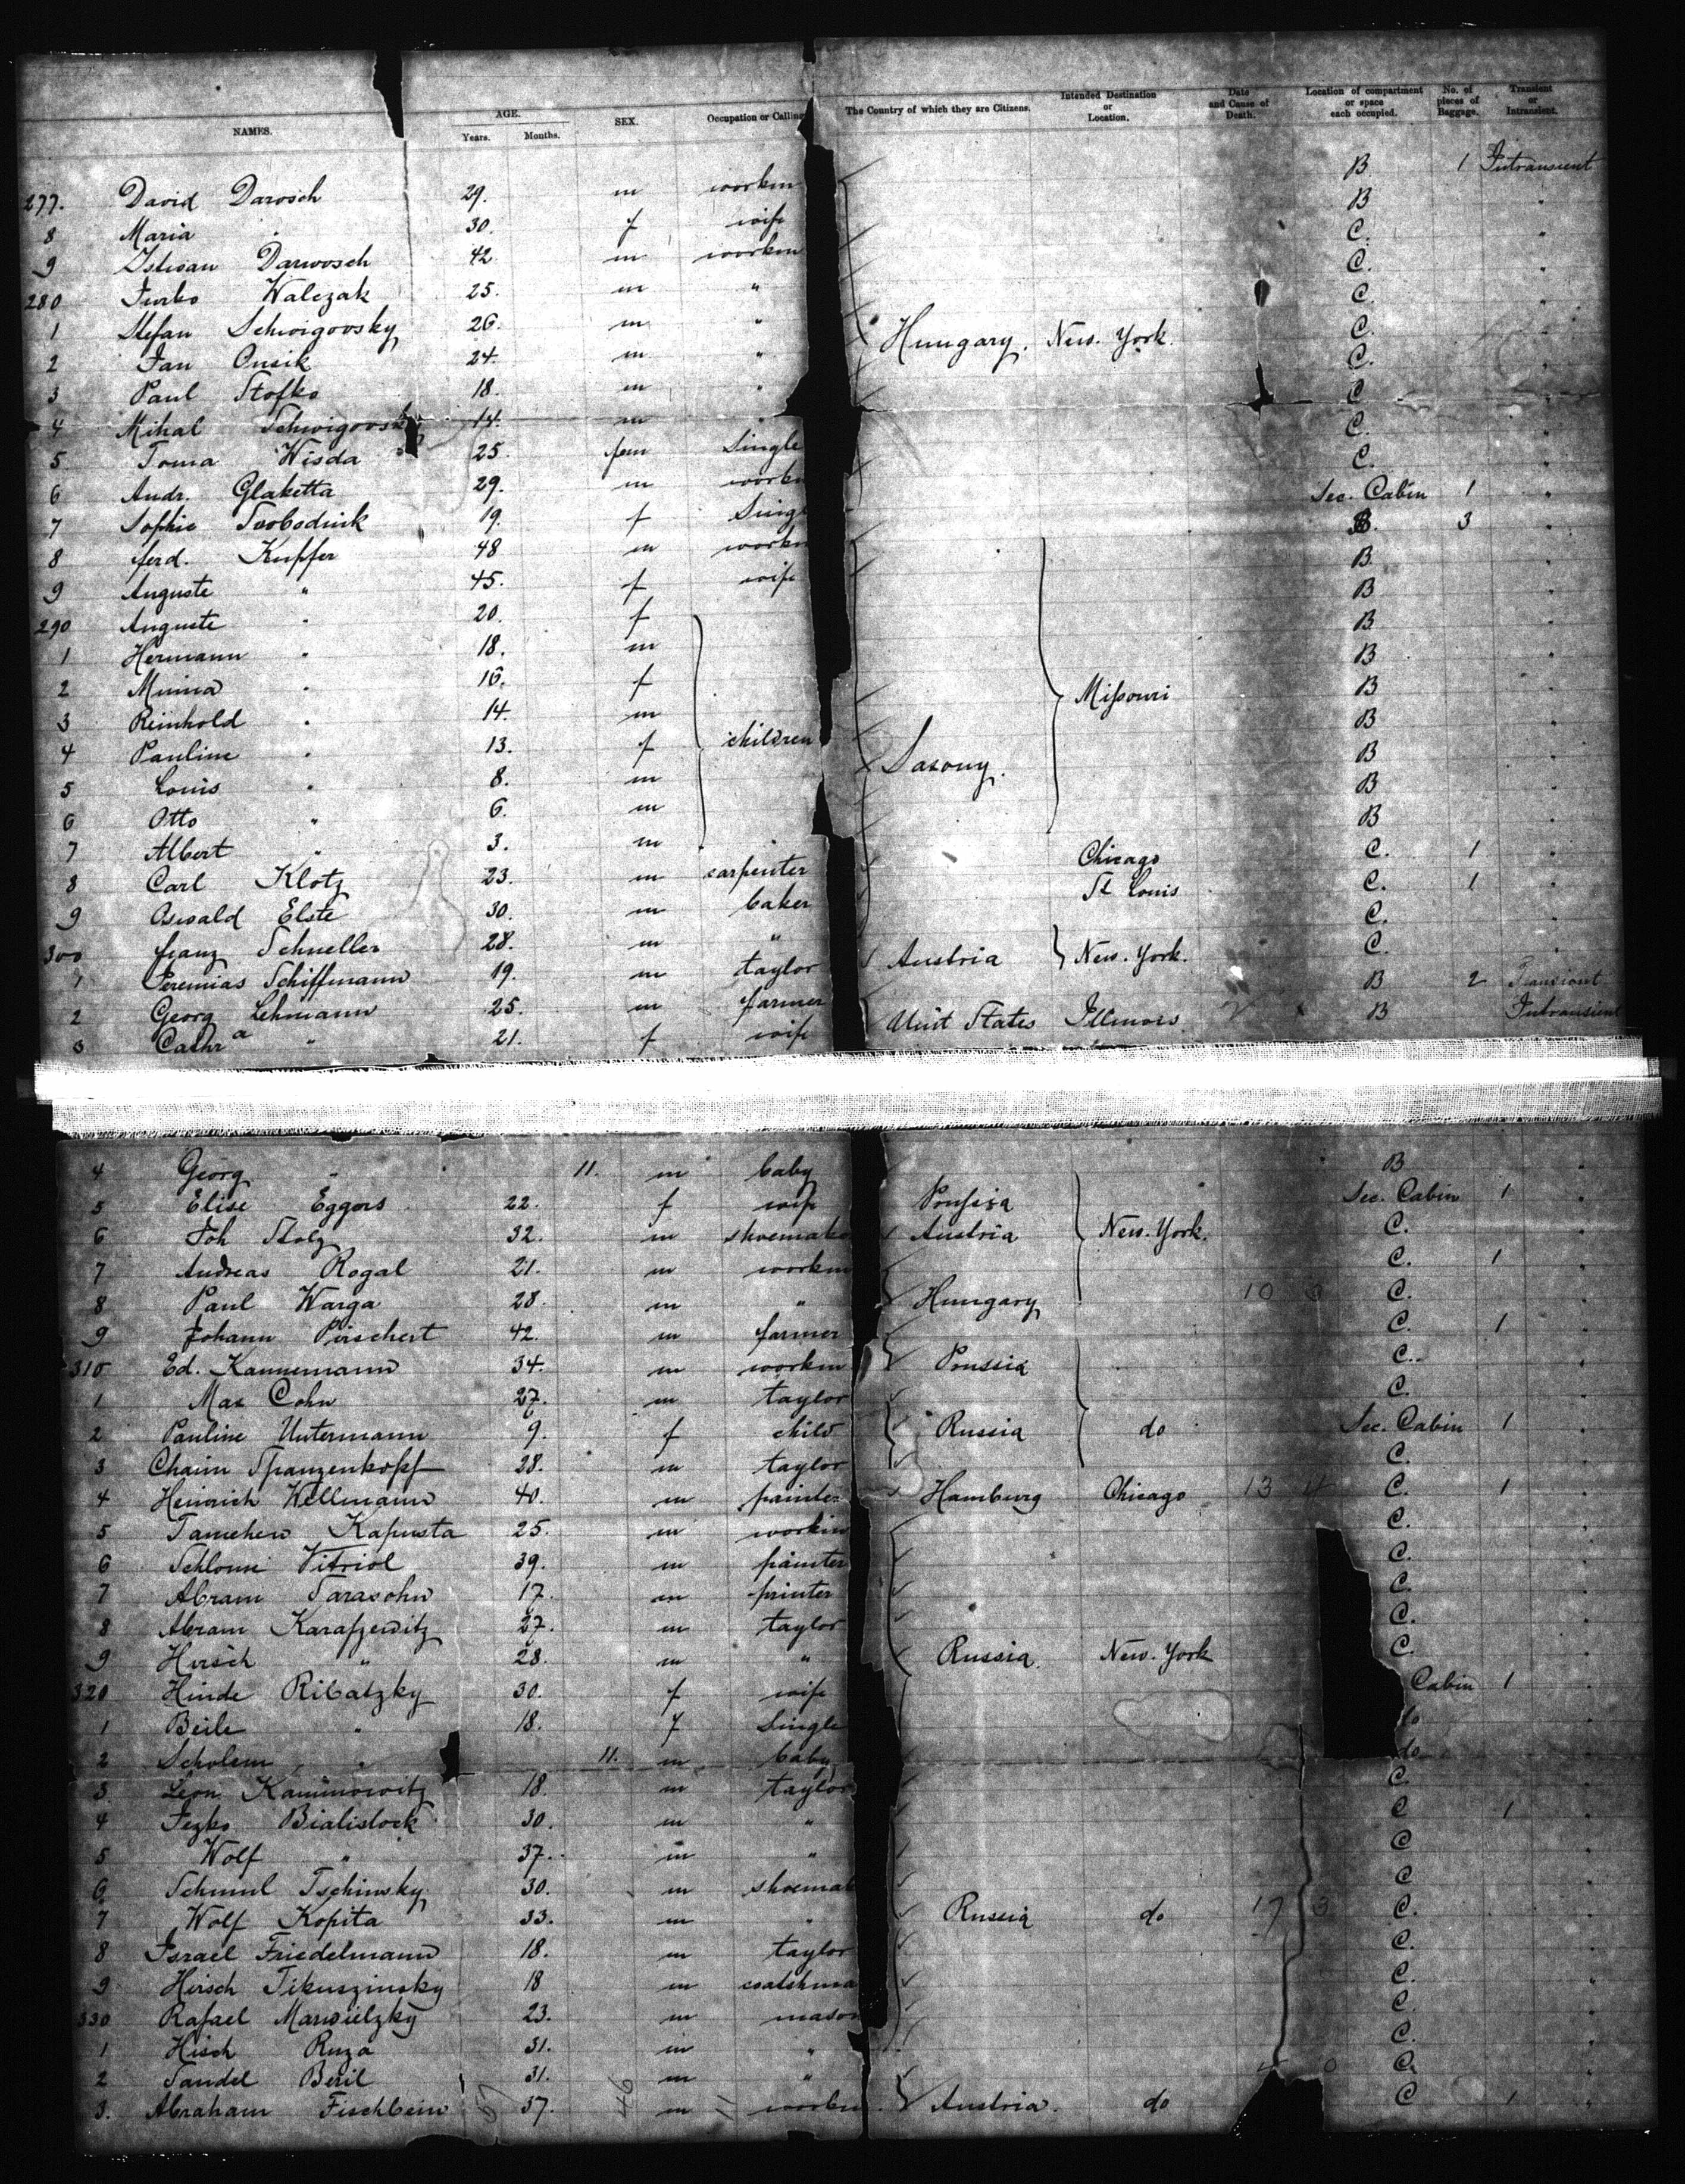 NAMES. AGE. Years. Months. SEX. Occupation or Calling The Country of which they are Citizens. Intended Destination or Location. Date and Cause of Death. Location of compartment or space each occupied. No. of pieces of Baggage. Transient or Intransient.
277. David Darosch 29. m workm B 1 Intransient
8 Maria " 30. f wife B "
9 Istvan Darwosch 42 m workm C. "
280 Walczak 25. m " C. "
1 Stefan Schwigovsky 26. m " C. "
2 Jan Onsik 24. m " Hungary. New. York. C. "
3 Paul Stofko 18. m " C. "
4 Mihal Schwigovsk 14. m " C "
5 Toma Wisda 25. fem Single C. "
6 Andr. Glaketta 29. m workm C. "
7 Sophie 19. f Singl Sec. Cabin 1 "
8 ferd. Kupfer 48 m workm B. 3 "
9 Auguste " 45. f wife B. "
290 Auguste " 20. f B "
1 Hermann " 18. m B "
2 Minna " 16. f B "
3 Reinhold " 14. m Missouri B "
4 Pauline " 13. f children B "
5 Louis " 8. m Saxony. B "
6 Otto " 6. m B "
7 Albert " 3. m B "
8 Carl Klotz 23. m carpenter Chicago C. 1 "
9 Oswald Elste 30. m baker St Louis C. 1 "
300 franz Schneller 28. m " C. "
1 Jeremias Schiffmann 19. m taylor Austria New. York. C. "
2 Georg Lehmann 25. m farmer B 2 Transient
3 Cathra " 21. f wife Unit States Illinois. B Intransient
4 Georg " 11. m baby B "
5 Elise Eggers 22. f wife Prussia Sec. Cabin 1 "
6 Joh Stolz 32. m shoemake Austria New. York. C. "
7 Andreas Rogal 21. m workm C. 1 "
8 Paul Warga 28. m " Hungary 10 C. "
9 Johann Pirschert 42. m farmer C. 1 "
310 Ed. Kannemann 34. m workm Prussia C. "
1 Max Cohn 27. m taylor C. "
2 Pauline Untermann 9. f child Russia do Sec. Cabin 1 "
3 Chaim Spanzenkopf 28. m taylor C. "
4 Heinrich Wellmann 40. m painter Hamburg Chicago 13 4 C. 1 "
5 Kapusta 25. m workm C. "
6 Schlome Vitriol 39. m painter C. "
7 Abram Sarasohn 17. m printer C. "
8 Abram Karaszewitz 27. m taylor C. "
9 Hirsch " 28. m " Russia. New. York C. "
320 Hinde Ribatzky 30. f wife Cabin 1 "
1 Beile " 18. f Single do "
2 Scholem " 11. m baby do "
3. Leon Kaminowitz 18. m taylor C. "
4 Bialistock 30. m " C 1 "
5 Wolf " 37. m " C "
6 Schmul Tschinsky 30. m shoemak C "
7 Wolf Kopita 33. m " Russia do 17 3 C. "
8 Israel Friedelmann 18. m taylor C. "
9 Hirsch Tikuszinsky 18 m coatshma C. "
330 Rafael Marwielzky 23. m mason C. "
1 Hisch Ruza 31. m " C. "
2 Sandel Beril 31. m " C. "
3. Abraham Fischbein 37. m workm Austria. do C 1 "